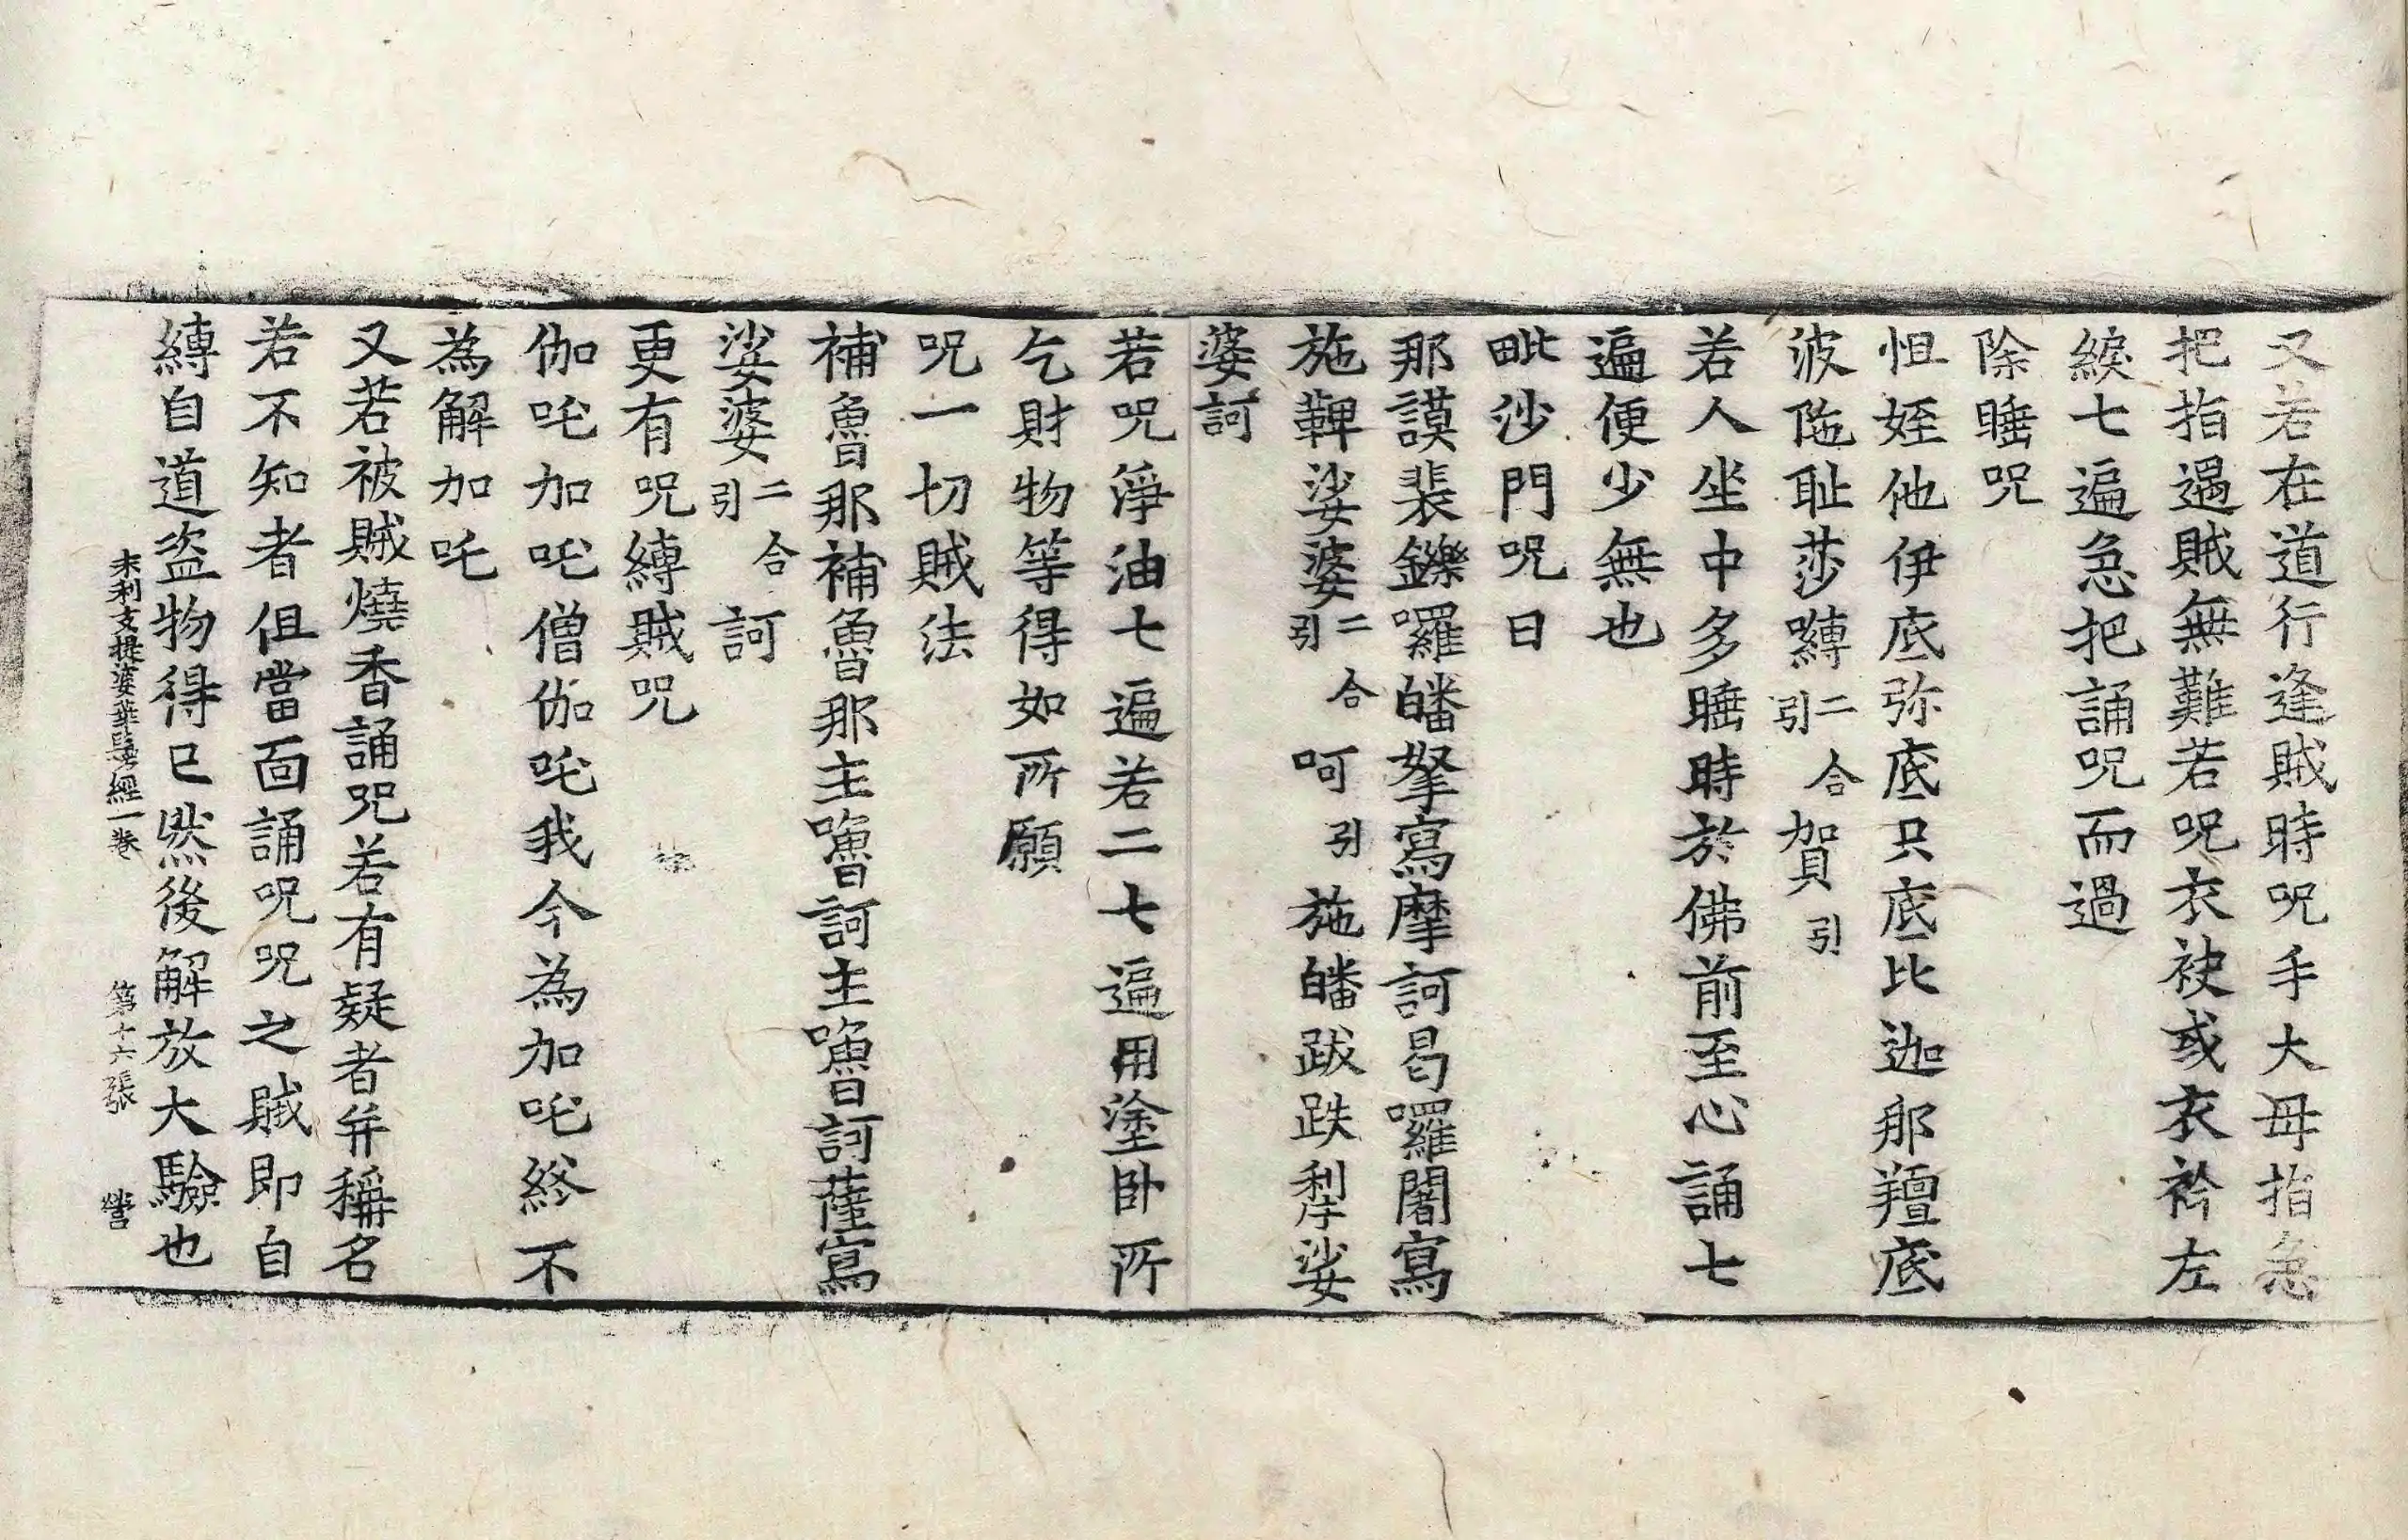 又若在道行逢賊時呪手大母指急
把指過賊無難若呪衣袂或衣衿左
綟七遍急把誦呪而過
除睡呪
怛姪他伊底弥底只底比迦那羶底
波陁耻莎嚩二合引賀引
若人坐中多睡時於佛前至心誦七
遍便少無也
毗沙門呪曰
那謨裴鑠囉皤拏寫摩訶曷囉闍寫
施鞞娑婆二合引呵引施皤跋跌利娑
婆訶
若呪淨油七遍若二七遍用塗卧所
乞財物等得如所願
呪一切賊法
補魯那補魯那主嚕訶主嚕訶薩寫
娑婆二合引訶
更有呪縛賊呪
伽吒加吒僧伽吒我今為加吒終不
為解加吒
又若被賊燒香誦呪若有疑者并稱名
若不知者但當面誦呪呪之賊即自
縛自道盜物得已然後解放大驗也
末利支提婆華鬘經一卷 第十六張